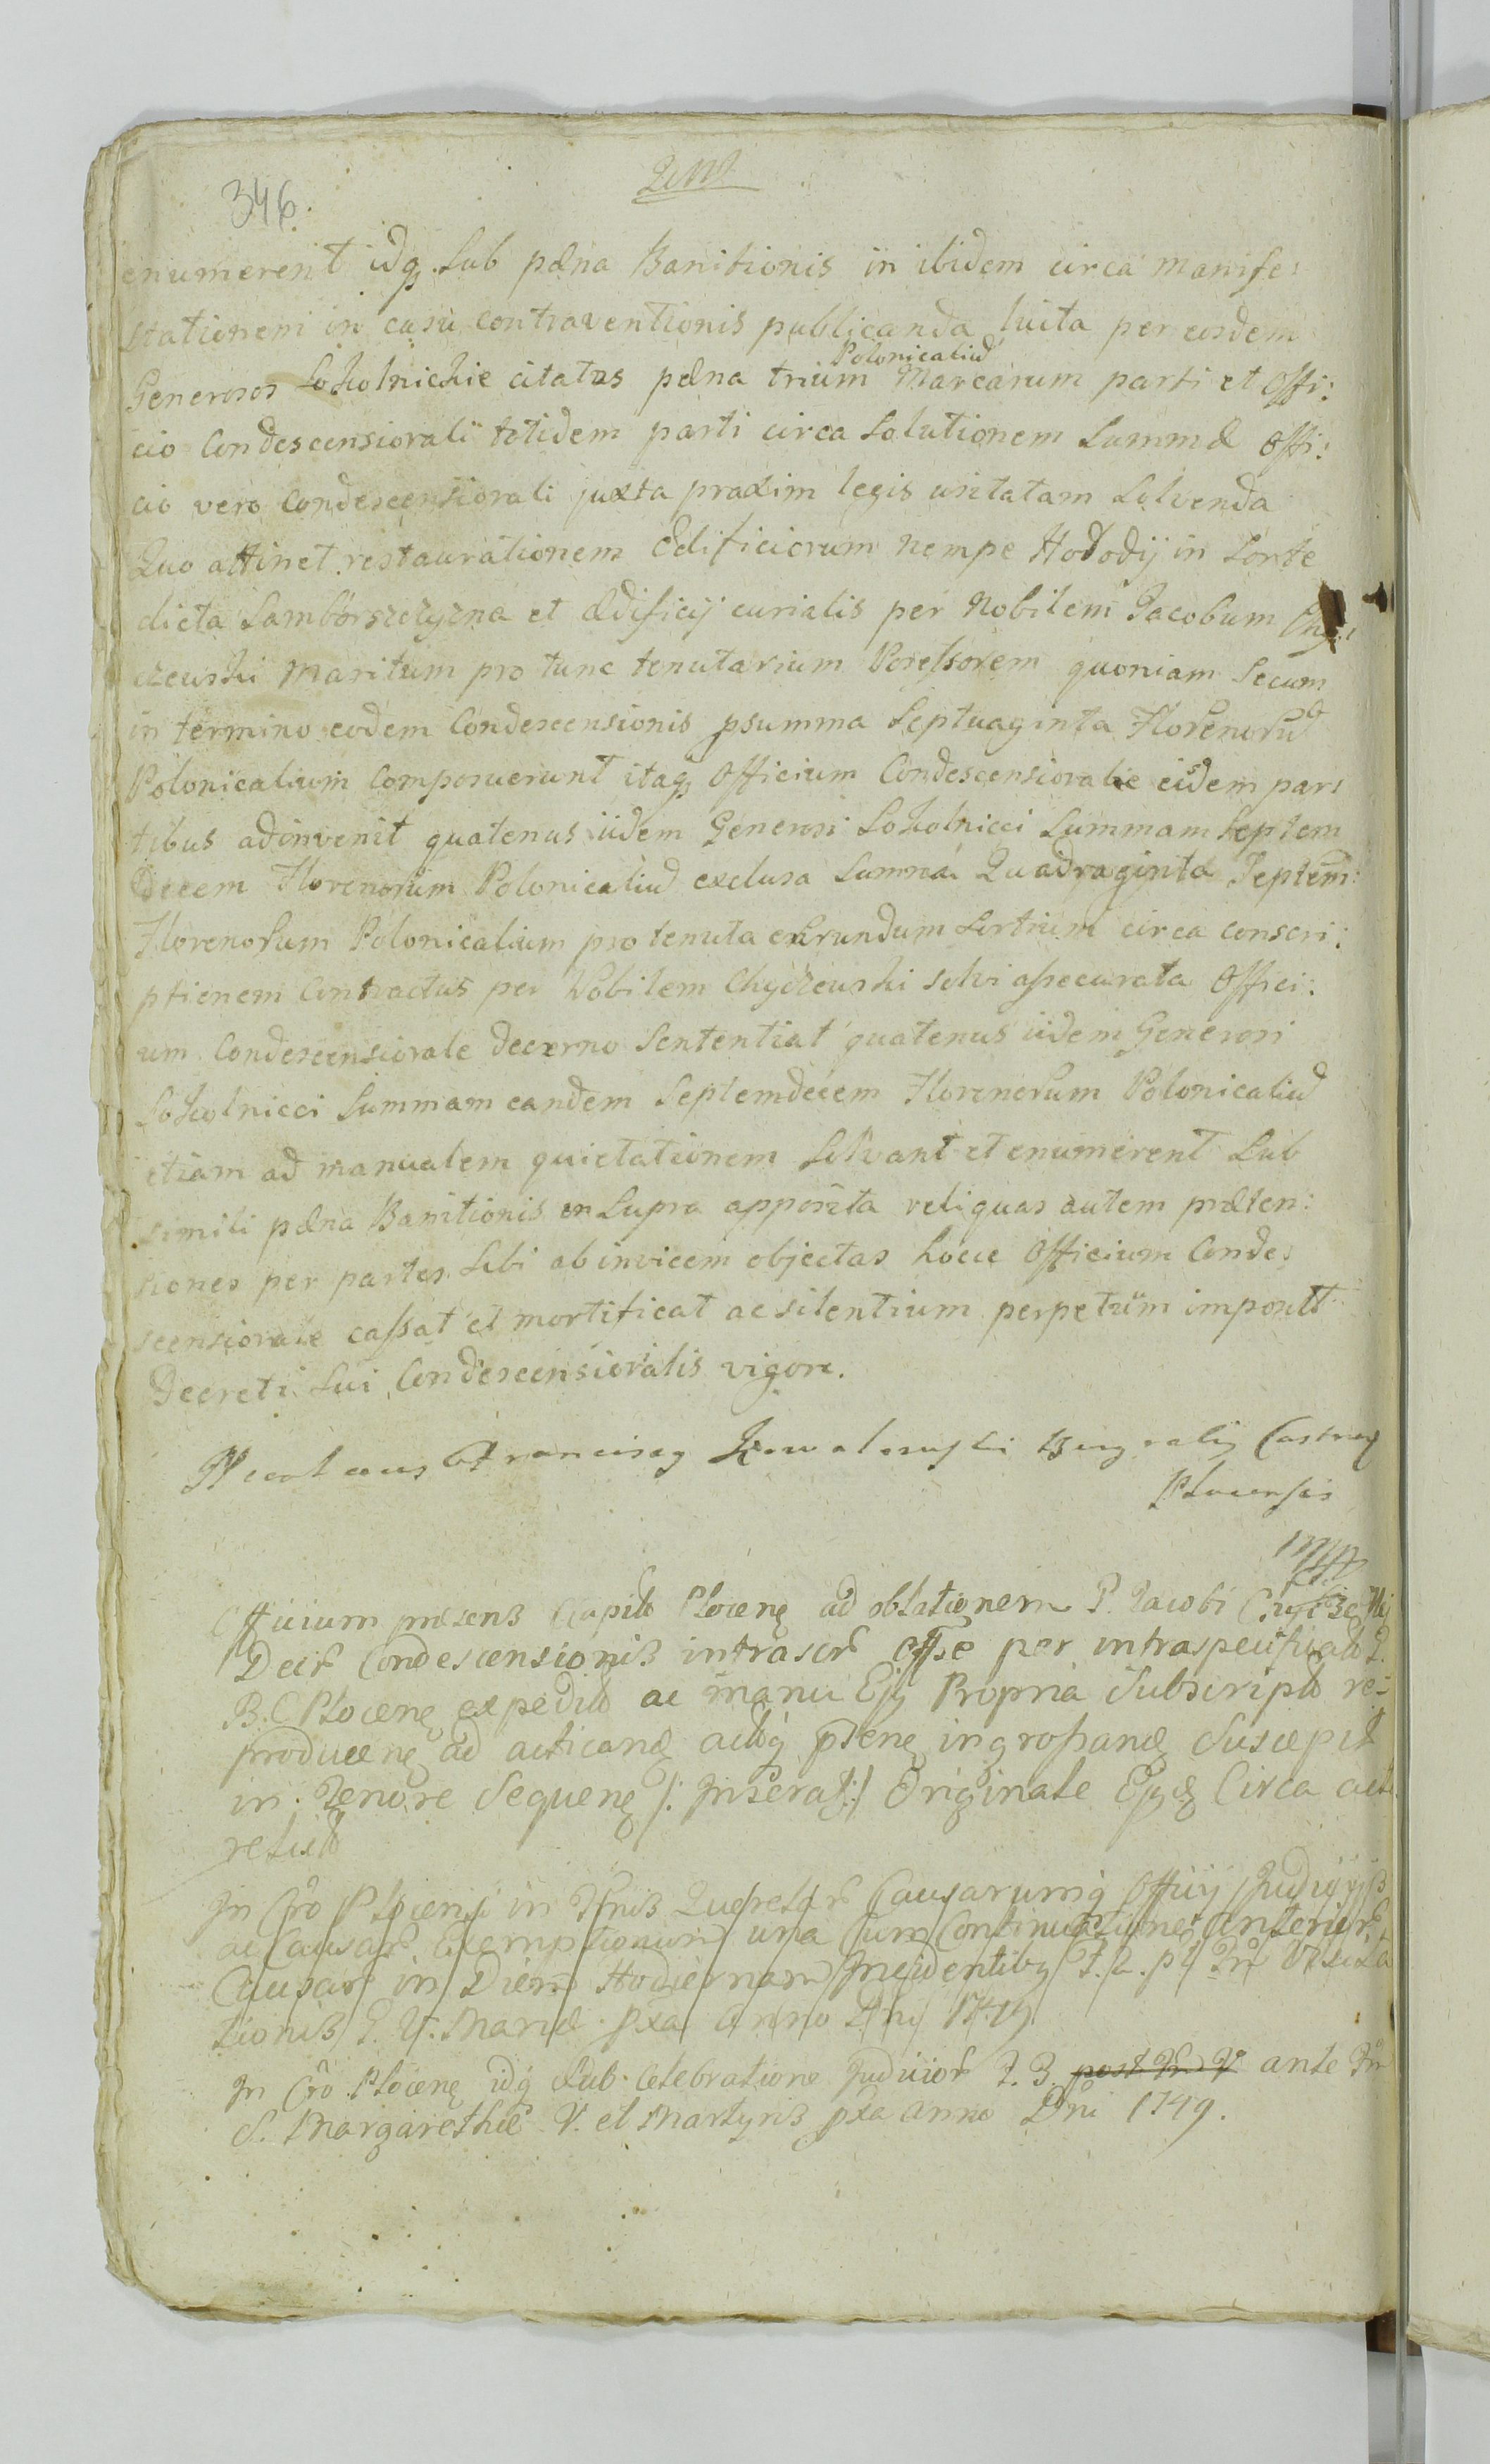 346.
enumerent idq. sub pæna Banitionis in ibidem circa manife:
stationem in casu contraventionis publicanda luita per eosdem
Polonicaliu
Generosos Sokolnickie citatas pæna trium Marcarum parti et Offi:
cio Condescensiorali totidem parti circa Solutionem Summæ Offi:
cio vero Condescensiorali juxta praxim legis usitatam Solvenda
Quo attinet restaurationem Ædificiorum nempe Hododij in Sorte
dicta Samborszczyzna et ædificij curialis per Nobilem Jacobum
czewski Maritum pro tunc tenutarium Possessorem quoniam Secum
in termino eodem Condescensionis psumma Septuaginta Florenoru
Polonicalium Composuerunt itaq Officium Condescensiorale eisdem par:
tibus adinvenit quatenus iidem Generosi Sokolnicci Summam Septem
decem Florenorum Polonicaliu exclusa Summa Quadraginta Septem:
Florenorum Polonicalium pro tenuta earundum Sortium circa conscri:
ptionem Contractus per Nobilem Chyczewski solvi assecurata Offici:
um Condescensiorale decerno Sententiat quatenus iidem Generosi
Sokolnicci Summam eandem Septemdecem Florenorum Polonicaliu
etiam ad manualem quietationem Solvant et enumerent Sub
simili pæna Banitionis en Supra apposita reliquas autem præten:
siones per partes Sibi abinvicem objectas hocce Officium Conde:
scensiorale cassat et mortificat ac silentium perpetuum imponit
Decreti Sui Condescensioralis vigore.
Franciscg Kowalewski Burgralig Castreng
Plocensis
mpp
Officium præsens Capit Plocenę ad oblationem P. Jacobi
Decr Condescensionis intrascr Offe per intraspecificat P.
B. C Plocenę expedit ac manu Ejg Propria Subscript re-
producenę ad acticandę actisq pstenę ingrossandę Suscepit
in Tenore Sequenę /: Inserat:/ Originale Ejdę Circa acta
relict
In Cro Plocensi in Tnis Querelar Causarumq Officij Judicij
ac Causar Exemptionum una Cum Continuatione Anterior
Causar in Diem Hodiernam Incidentibg F. 2. pt In Visita
tionis B. V. Mariæ pxa Anno Dni 1749
In Cro Plocenę idq Sub Celebratione Judicior F. 3. post ante In
S. Margarethæ V. et Martyris pxa Anno Dni 1749.